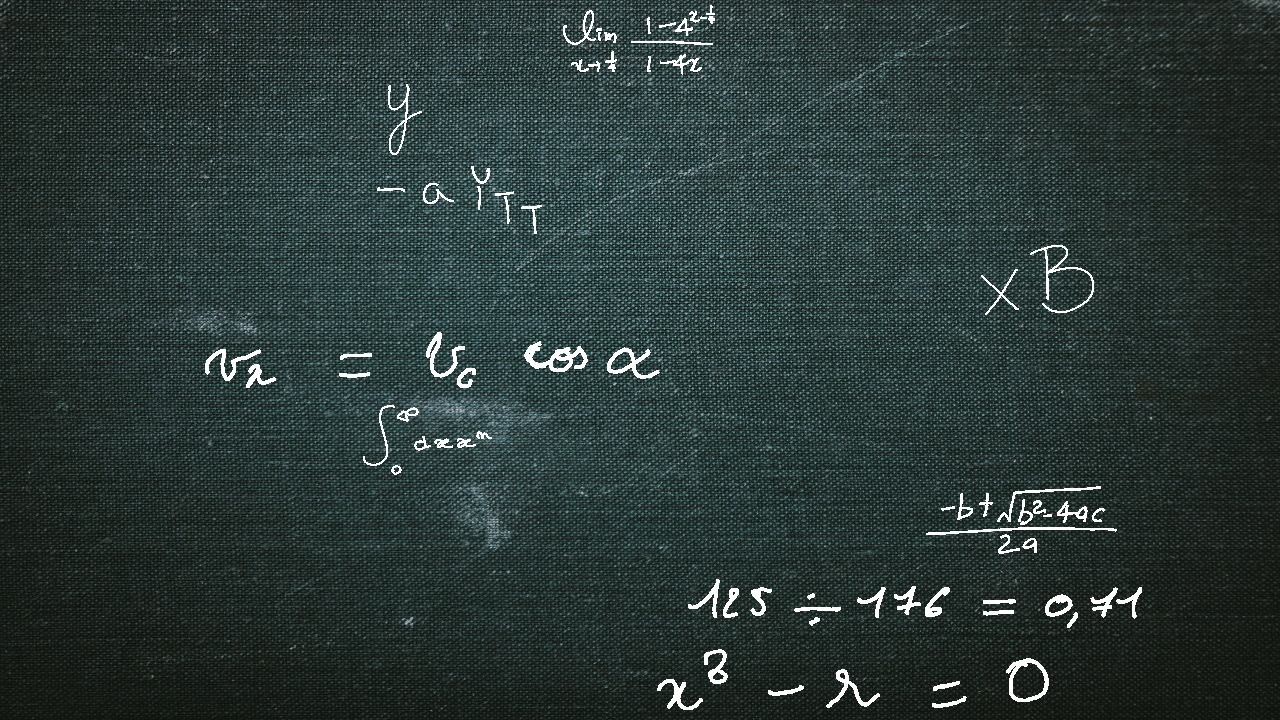 \lim_{x \to \frac{1}{4}} \frac{1-4^{2-\frac{1}{x}}}{1-4x}
y
- a Y_{T_T}
\times B
v_x = v_0 \cos \alpha
\int_0^\infty dx x^n
\frac{-b+\sqrt{b^2-4ac}}{2a}
125 ÷ 176 = 0,71
x^3 - r = 0